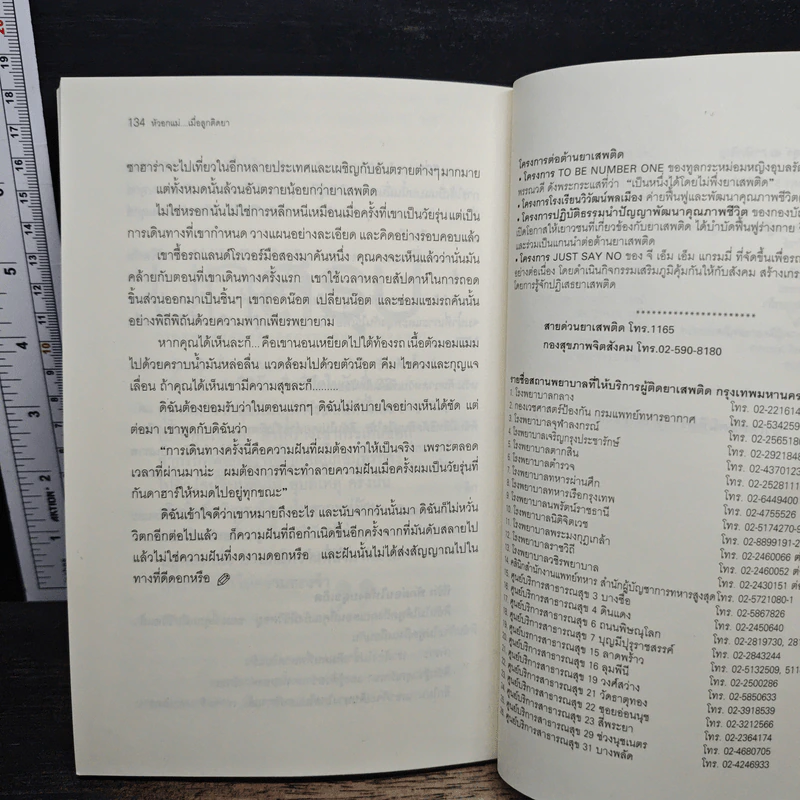 134 หัวอกแม่...เมื่อลูกติดยา
ซาฮาร่าจะไปเที่ยวในอีกหลายประเทศและเผชิญกับอันตรายต่างๆ มากมาย
แต่ทั้งหมดนั้นล้วนอันตรายน้อยกว่ายาเสพติด
ไม่ใช่หรอกนั่นไม่ใช่การหลีกหนีเหมือนเมื่อครั้งที่เขาเป็นวัยรุ่น แต่เป็น
การเดินทางที่เขากำหนด วางแผนอย่างละเอียด และคิดอย่างรอบคอบแล้ว
เขาซื้อรถแลนด์โรเวอร์มือสองมาคันหนึ่ง คุณคงจะเห็นแล้วว่านั่นมัน
คล้ายกับตอนที่เขาเดินทางครั้งแรก เขาใช้เวลาหลายสัปดาห์ในการถอด
ชิ้นส่วนออกมาเป็นชิ้นๆ เขาถอดน๊อต เปลี่ยนน๊อต และซ่อมแซมรถคันนั้น
อย่างพิถีพิถันด้วยความพากเพียรพยายาม
หากคุณได้เห็นละก็... คือเขานอนเหยียดไปใต้ท้องรถ เนื้อตัวมอมแมม
ไปด้วยคราบน้ำมันหล่อลื่น แวดล้อมไปด้วยตัวน๊อต คีม ไขควงและกุญแจ
เลื่อน ถ้าคุณได้เห็นเขามีความสุขละก็........
ดิฉันต้องยอมรับว่าในตอนแรกๆ ดิฉันไม่สบายใจอย่างเห็นได้ชัด แต่
ต่อมา เขาพูดกับดิฉันว่า
“การเดินทางครั้งนี้คือความฝันที่ผมต้องทำให้เป็นจริง เพราะตลอด
เวลาที่ผ่านมาน่ะ ผมต้องการที่จะทำลายความฝันเมื่อครั้งผมเป็นวัยรุ่นที่
กันดาฮาร์ให้หมดไปอยู่ทุกขณะ”
ดิฉันเข้าใจดีว่าเขาหมายถึงอะไร และนับจากวันนั้นมา ดิฉันก็ไม่หวั่น
วิตกอีกต่อไปแล้ว ก็ความฝันที่ถือกำเนิดขึ้นอีกครั้งจากที่มันดับสลายไป
แล้วไม่ใช่ความฝันที่งดงามดอกหรือ และฝันนั้นไม่ได้ส่งสัญญาณไปใน
ทางที่ดีดอกหรือ
โครงการต่อต้านยาเสพติด
• โครงการ TO BE NUMBER ONE ของทูลกระหม่อมหญิงอุบลรัต
พรรณวดี ดังพระกระแสที่ว่า “เป็นหนึ่งได้โดยไม่พึ่งยาเสพติด”
• โครงการโรงเรียนวิวัฒน์พลเมือง ค่ายฟื้นฟูและพัฒนาคุณภาพชีวิต
• โครงการปฏิบัติธรรมนำปัญญาพัฒนาคุณภาพชีวิต ของกองบัญ
เปิดโอกาสให้เยาวชนที่เกี่ยวข้องกับยาเสพติด ได้บำบัดฟื้นฟูร่างกาย
และร่วมเป็นแกนนำต่อต้านยาเสพติด
• โครงการ JUST SAY NO ของ จี เอ็ม เอ็ม แกรมมี่ ที่จัดขึ้นเพื่อรณ
อย่างต่อเนื่อง โดยดำเนินกิจกรรมเสริมภูมิคุ้มกันให้กับสังคม สร้างเกรา
โดยการรู้จักปฏิเสธยาเสพติด
สายด่วนยาเสพติด โทร.1165
กองสุขภาพจิตสังคม โทร.02-590-8180
รายชื่อสถานพยาบาลที่ให้บริการผู้ติดยาเสพติด กรุงเทพมหานคร
1. โรงพยาบาลกลาง โทร. 02-221614
2. กองเวชศาสตร์ป้องกัน กรมแพทย์ทหารอากาศ โทร. 02-534259
3. โรงพยาบาลจุฬาลงกรณ์ โทร. 02-256518
4. โรงพยาบาลเจริญกรุงประชารักษ์ โทร. 02-2921848
5. โรงพยาบาลตากสิน โทร. 02-4370123
6. โรงพยาบาลตำรวจ โทร. 02-2528111
7. โรงพยาบาลทหารผ่านศึก โทร. 02-6449400
8. โรงพยาบาลทหารเรือกรุงเทพ โทร. 02-4755526
9. โรงพยาบาลนพรัตน์ราชธานี โทร. 02-5174270-9
10. โรงพยาบาลนิติจิตเวช โทร. 02-8899191-2
11. โรงพยาบาลพระมงกุฎเกล้า โทร. 02-2460066 ต่
12. โรงพยาบาลราชวิถี โทร. 02-2460052 ต่
13. โรงพยาบาลวชิรพยาบาล โทร. 02-2430151 ต่อ
14. คลินิกสำนักงานแพทย์ทหาร สำนักผู้บัญชาการทหารสูงสุด โทร. 02-5721080-1
15. ศูนย์บริการสาธารณสุข 3 บางซื่อ โทร. 02-5867826
16. ศูนย์บริการสาธารณสุข 4 ดินแดง โทร. 02-2450640
17. ศูนย์บริการสาธารณสุข 6 ถนนพิษณุโลก โทร. 02-2819730, 281
18. ศูนย์บริการสาธารณสุข 7 บุญมีปุรุราชสรรค์ โทร. 02-2843244
19. ศูนย์บริการสาธารณสุข 15 ลาดพร้าว โทร. 02-5132509, 511
20. ศูนย์บริการสาธารณสุข 16 ลุมพินี โทร. 02-2500286
21. ศูนย์บริการสาธารณสุข 19 วงศ์สว่าง โทร. 02-5850633
22. ศูนย์บริการสาธารณสุข 21 วัดธาตุทอง โทร. 02-3918539
23. ศูนย์บริการสาธารณสุข 22 ซอยอ่อนนุช โทร. 02-3212566
24. ศูนย์บริการสาธารณสุข 23 สี่พระยา โทร. 02-2364174
25. ศูนย์บริการสาธารณสุข 29 ช่วงนุชเนตร โทร. 02-4680705
26. ศูนย์บริการสาธารณสุข 31 บางพลัด โทร. 02-4246933